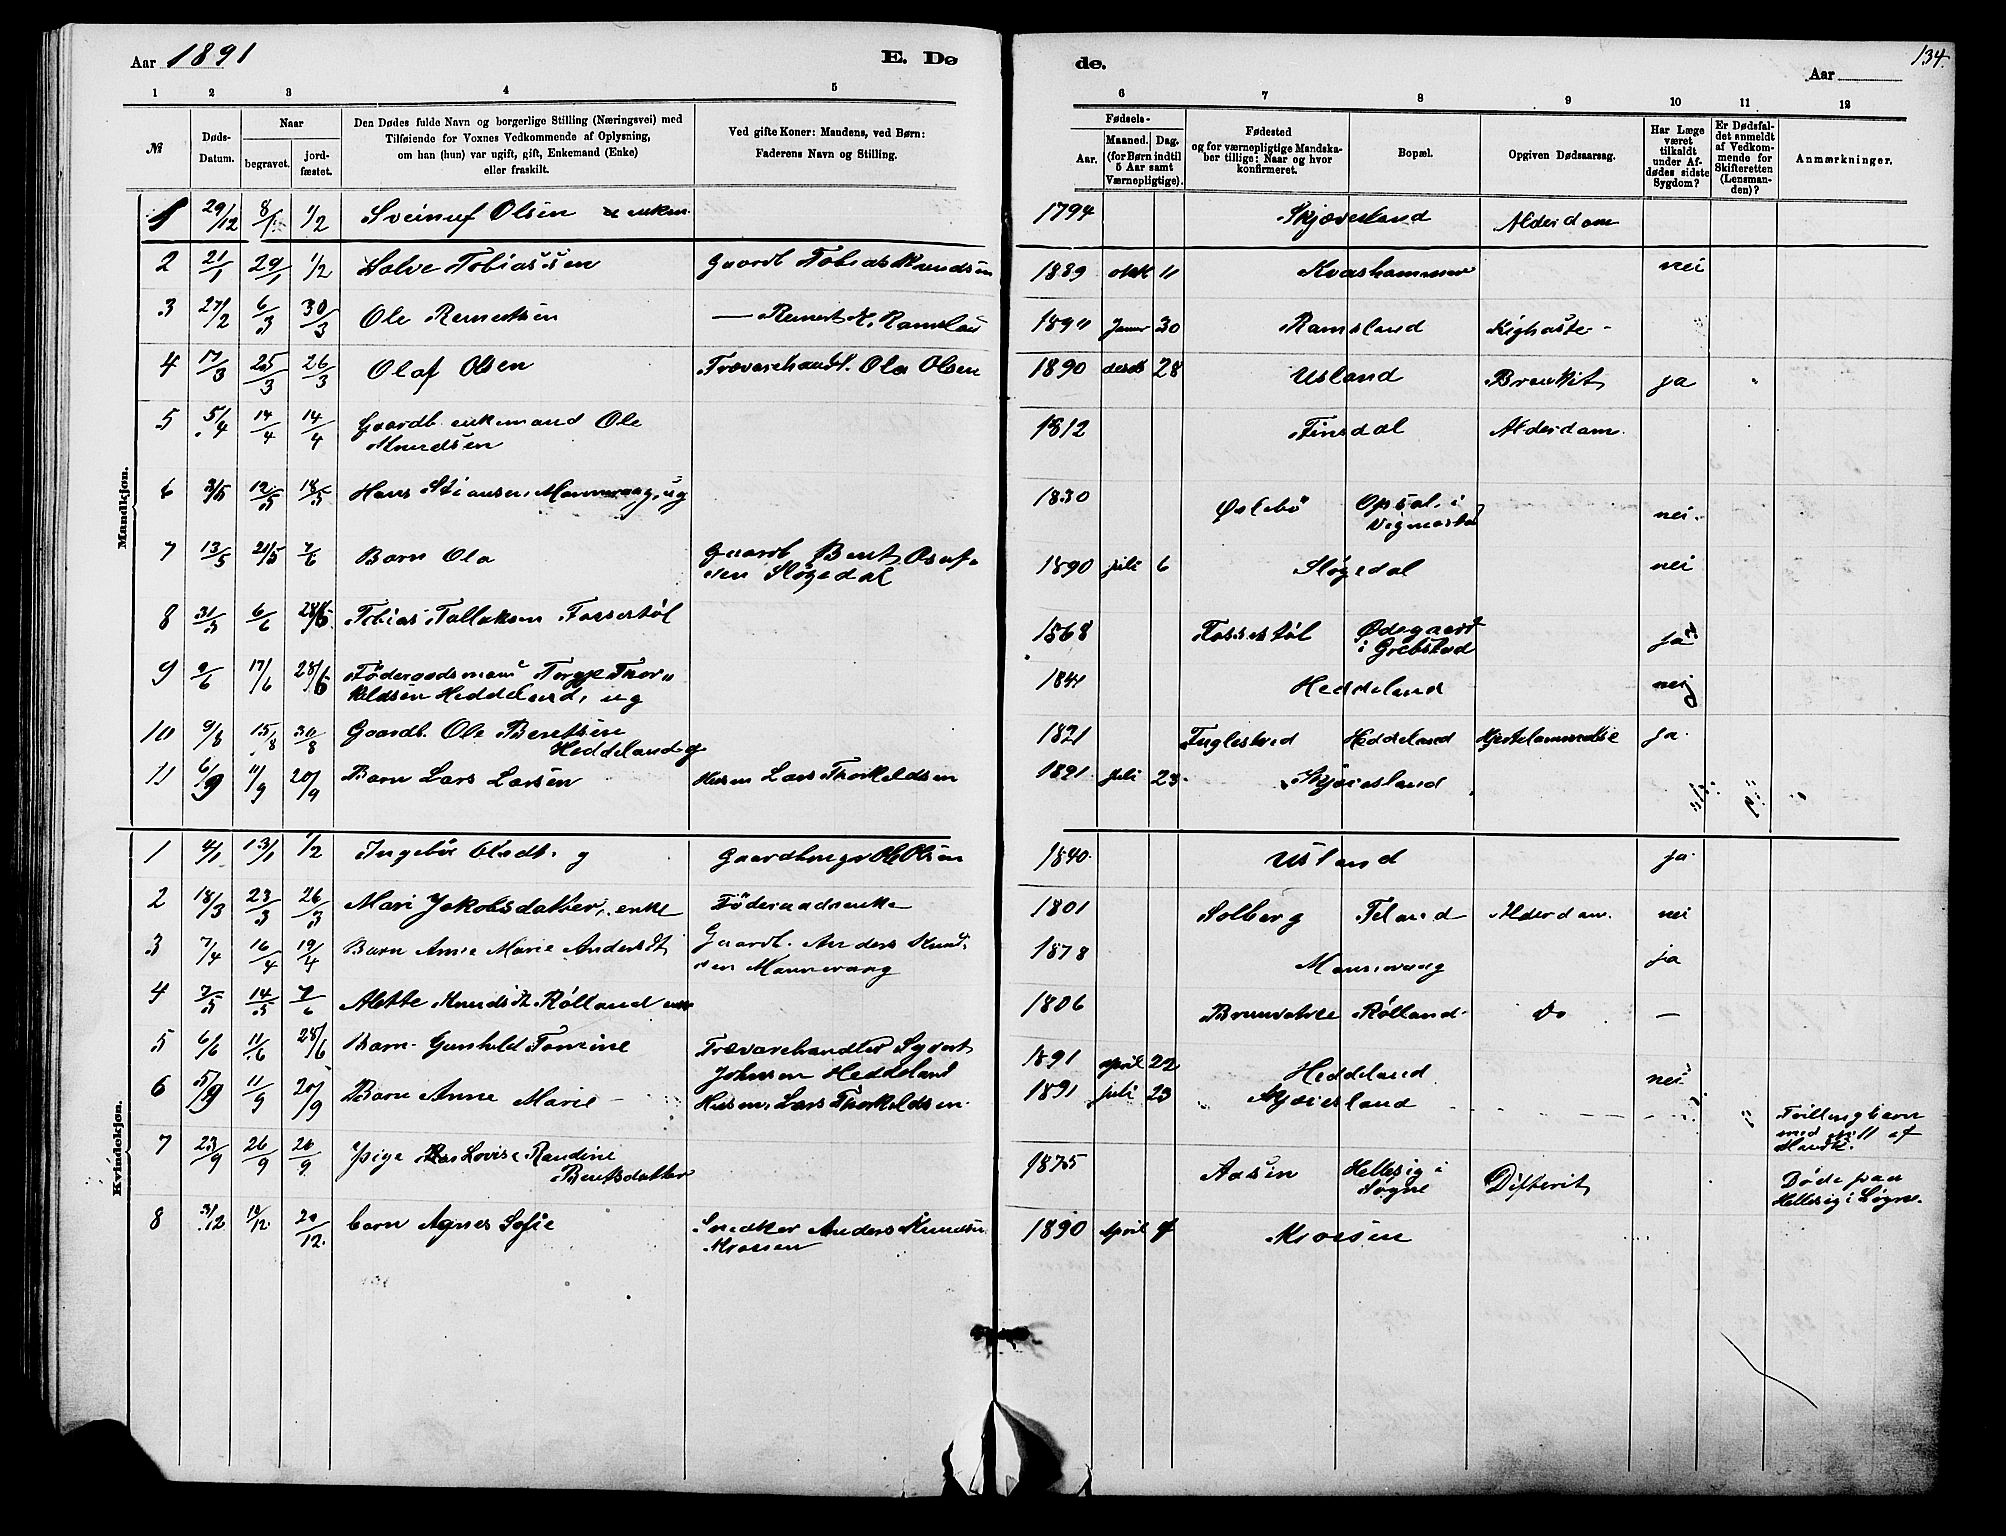 Aar 1891
E. Dø
de.
Aar
134.
1 2 3 4 5 6 7 8 9 10 11 12
№
Døds-
Datum.
Naar
begravet.
jord-
fæstet.
Den Dødes fulde Navn og borgerlige Stilling (Næringsvei) med
Tilføiende for Voxnes Vedkommende af Oplysning,
om han (hun) var ugift, gift, Enkemand (Enke)
eller fraskilt.
Ved gifte Koner: Mandens, ved Børn:
Faderens Navn og Stilling.
Fødsels-
Aar.
Maaned. Dag.
(for Børn indtil
5 Aar samt
Værnepligtige).
Fødested
og for værnepligtige Mandska-
ber tillige: Naar og hvor
konfirmeret.
Bopæl.
Opgiven Dødsaarsag.
Har Læge
været
tilkaldt
under Af-
dødes sidste
Sygdom?
Er Dødsfal-
det anmeldt
af Vedkom-
mende for
Skifteretten
(Lensman-
den)?
Anmærkninger.
Mandkjøn.
1 29/12 8/1 1/2 Olsen enkem. 1794 Skjævesland Alderdom
2 21/1 29/1 1/2 Salve Tobiassen Gaardb Tobias Knudsen 1889 okt 11 Kvashammer nei
3 27/2 6/3 30/3 Ole Reinertsen — Reinert K. Ramsland 1891 Januar 30 Ramsland Kighoste -
4 17/3 25/3 26/3 Olaf Olsen Trævarehandl. Ola Olsen 1890 28 Usland Bronkit ja
5 5/4 14/4 14/4 Gaardb. enkemand Ole
Knudsen 1812 Finsdal Alderdom.
6 3/5 12/5 18/5 Hans Mannevaag, ug 1830 Øslebø Opsal i
Vigmostad nei.
7 13/5 20/5 7/6 Barn Ola Gaardb Bent Osuf-
sen Sløgedal 1890 juli 6 Sløgedal nei
8 31/5 6/6 28/6 Tobias Tallaksen Fossestøl 1868 Fossestøl Ødegaard
i Grebstad ja
9 9/6 17/6 28/6 Føderaadsmand Terje Thor
kildsen Heddeland, ug 1841 Heddeland nei
10 9/8 15/8 30/8 Gaardb. Ole Bentsen
Heddeland g 1821 Fuglestved Heddeland Hjertelammelse ja.
11 6/9 11/9 20/9 Barn Lars Larsen Husm Lars Thorkildsen 1891 juli 23. Skjævesland
Kvindekjøn.
1 4/1 13/1 1/2 Ingebor Olsdt. g Gaardbruger O Olsen 1840. Usland ja.
2 18/3 23/3 26/3 Mari Jakobsdatter, enke Føderaadsenke 1801 Solberg Feland Alderdom. nei
3 7/4 16/4 19/4 Barn Anne Marie Andersdt Gaardb. Anders Knud-
sen Mannevaag 1878 Mannevaag ja
4 7/5 14/5 7/6 Alette Knudsdt Rølland enke 1806 Brunvatne Rølland Do —
5 6/6 11/6 28/6 Barn Gunhild Tomine Trævarehandler Syvert
Johnsen Heddeland 1891 april 22 Heddeland nei
6 5/9 11/9 20/9 Barn Anne Marie - Husm. Lars Thorkildsen 1891 juli 23 Skjævesland Tvillingbarn
med № 11 af
Mandk.
7 23/9 26/9 26/9 Pige Lovise Randine
Bentsdatter 1875 Aasen Hellesig i
Søgne Difterit Døde paa
Hellesig i Søgne.
8 3/12 10/12 20/12. barn Agnes Sofie Snedker Anders Knudsen
Moesen 1890 April 9 Moesen